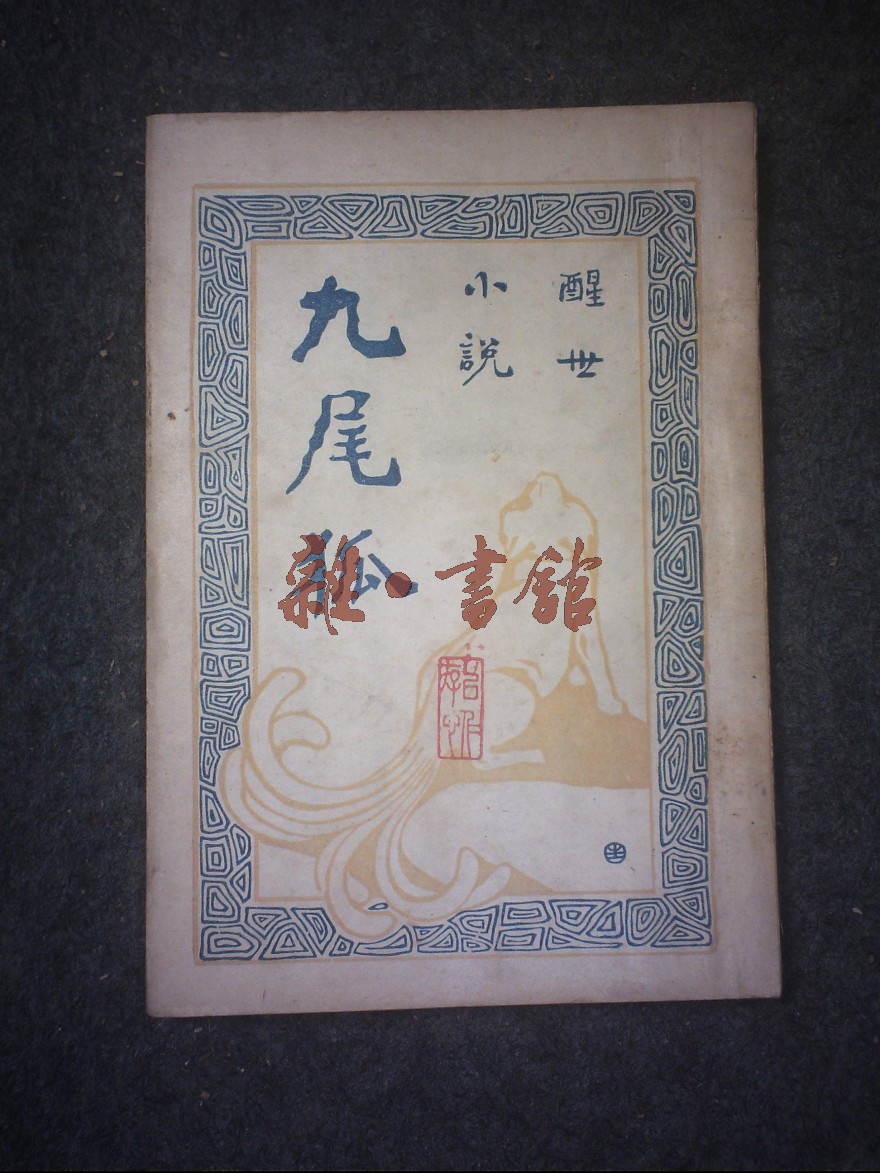 醒世
小說
九尾狐
雜·書館